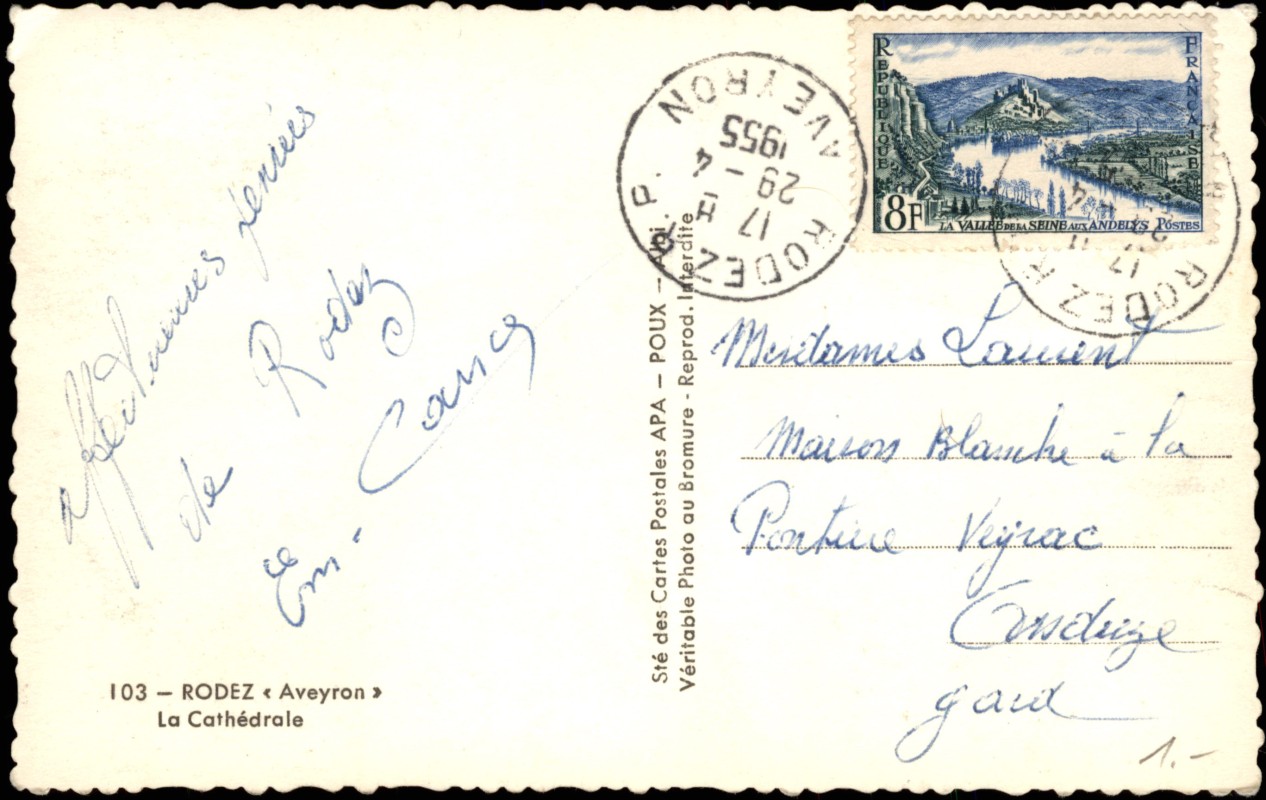 affectueuses pensées
de Rodez
Em.
103 – RODEZ « Aveyron »
La Cathédrale
Sté des Cartes Postales APA – POUX –
Véritable Photo au Bromure - Reprod. Interdite
RODEZ R.P.
AVEYRON
17 H
29 - 4
1955
RÉPUBLIQUE FRANÇAISE
8F
LA VALLÉE DE LA SEINE AUX ANDELYS POSTES
RODEZ R
17 H
Mesdames Laurent
Maison Blanche à la
Veyrac
Anduze
gard
1.-